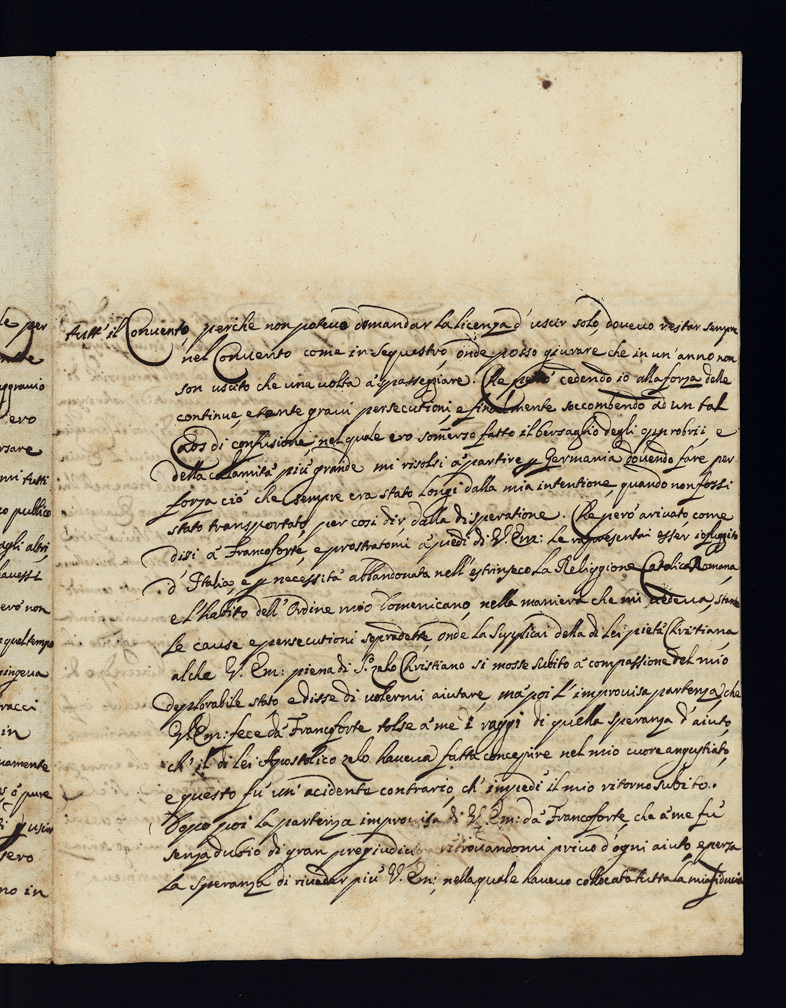 tutt' il Convento, perche non potevo domandar la licenza d' uscir solo, dovevo restar sempre
nel Convento come in sequestro, onde posso giurare che in un' anno non
son uscito che una volta à spasseggiare. Che però cedendo io alla forza delle
continue, e tante gravi persecutioni, e finalmente soccombendo ad un tal
Caos di confusione, nel quale ero somerso fatto il bersaglio degli opprobrii, e
della calamità più grande mi risolsi à partire p Germania dovendo fare per
forza ciò che sempre era stato longi dalla mia intentione, quando non fossi
stato transportato, per così dir dalla disperatione. Che però arivato come
dissi à Francoforte, e prostratomi à piedi di V. Em: le rapresentai esser io fuggito
d' Italia, e p necessità abbandonata nell' estrinseco la Religgione Catolica Romana,
e l' habito dell' Ordine mio Domenicano, nella maniera che mi vedeva, stante
le cause e persecutioni sopradette, onde la supplicai della di lei pietà Christiana
al che V. Em: piena di S. zelo Christiano si mosse subito à compassione del mio
deplorabile stato, e disse di volermi aiutare, mà poi l' improvisa partenza, che
V. Em: fece dà Francoforte, tolse à me i raggi di quella speranza d' aiuto,
ch' il di lei Apostolico zelo haveva fatto concepire nel mio cuore angustiato,
e questo fu un' accidente contrario, ch' impedì il mio ritorno subito.
Dopo poi la partenza improvisa di V. Em: dà Francoforte, che à me fù
senza dubio di gran pregiudicio ritrovandomi privo d' ogni aiuto, e persa
la speranza di riveder più V. Em:, nella quale havevo collocata tutta la mia fiducia